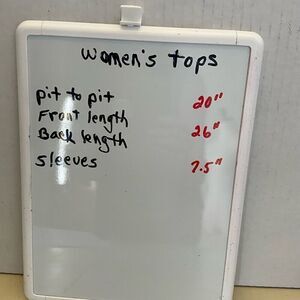 women's tops
pit to pit 20"
Front length 26"
Back length
sleeves 7.5"